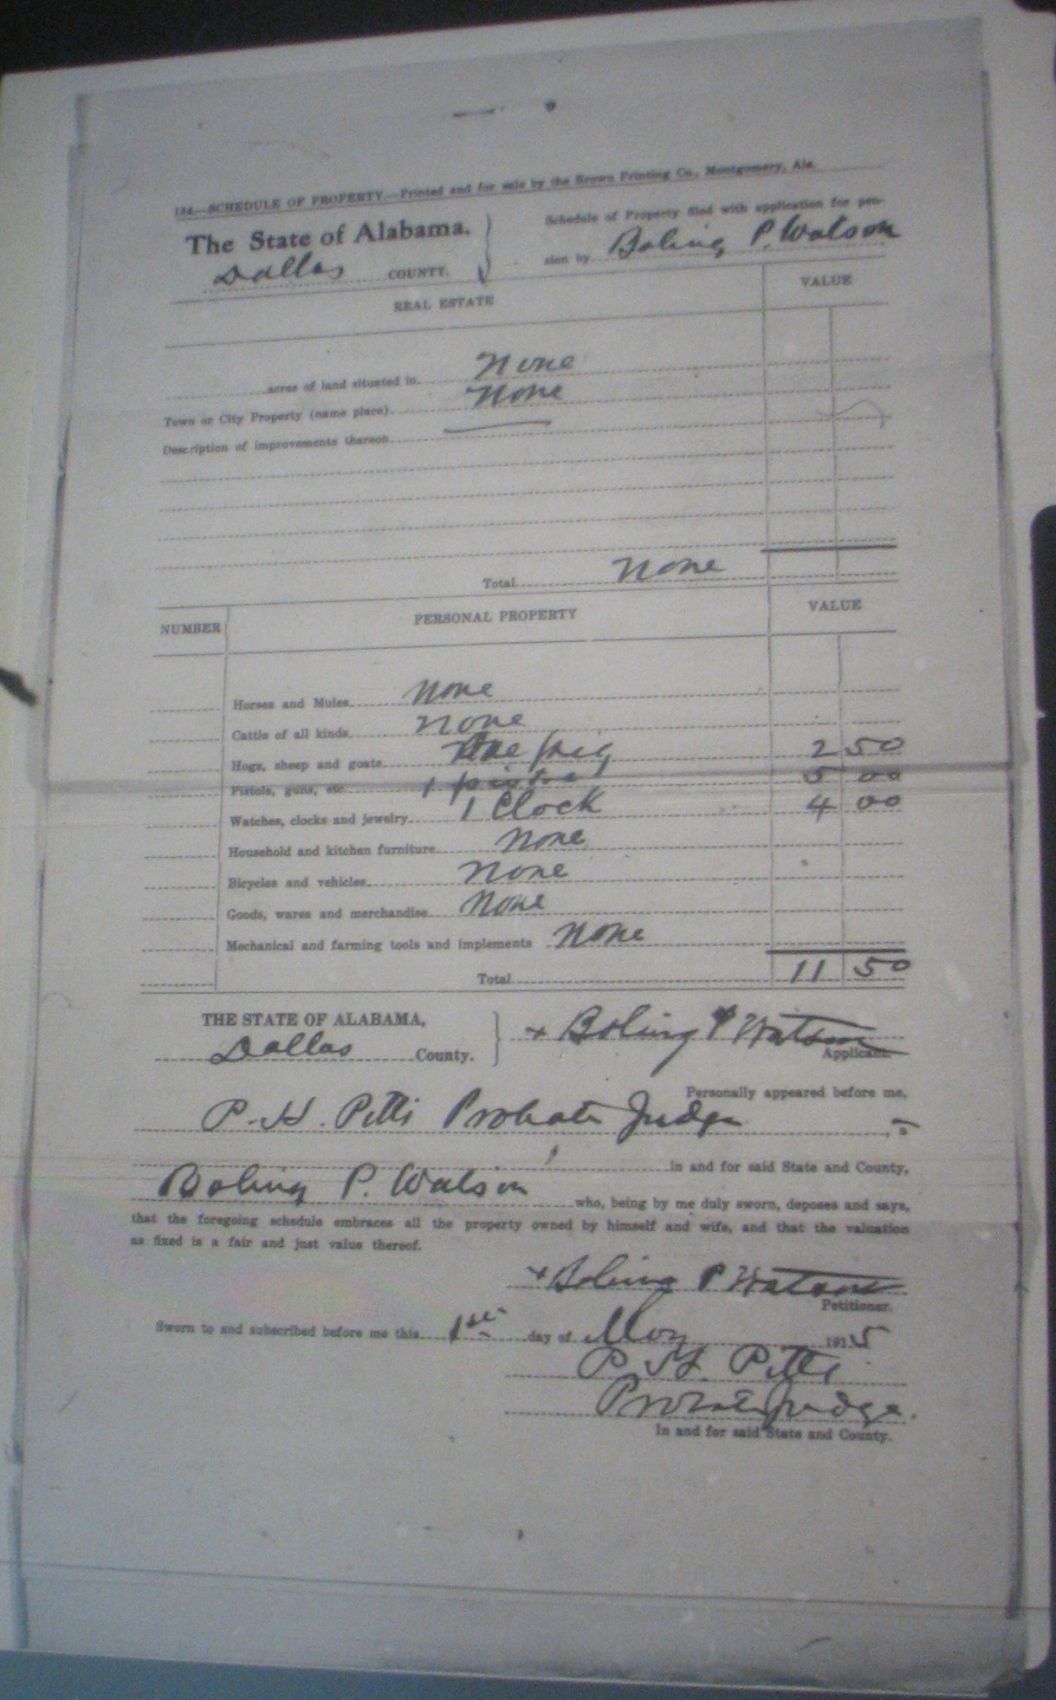 134—SCHEDULE OF PROPERTY—Printed and for sale by the Brown Printing Co., Montgomery, Ala.
The State of Alabama.
Dallas COUNTY.
Schedule of Property filed with application for pen-
sion by Boling P. Watson
REAL ESTATE VALUE
acres of land situated in None
Town or City Property (name place) None
Description of improvements thereon
Total None
NUMBER PERSONAL PROPERTY VALUE
Horses and Mules None
Cattle of all kinds None
Hogs, sheep and goats One pig 2 50
Pistols, guns, etc. 1 5 00
Watches, clocks and jewelry 1 Clock 4 00
Household and kitchen furniture None
Bicycles and vehicles None
Goods, wares and merchandise None
Mechanical and farming tools and implements None
Total 11 50
THE STATE OF ALABAMA,
Dallas County.
x Boling P Watson
Applicant.
Personally appeared before me,
P. H. Pitts Probate Judge, a
in and for said State and County,
Boling P. Watson who, being by me duly sworn, deposes and says,
that the foregoing schedule embraces all the property owned by himself and wife, and that the valuation
as fixed is a fair and just value thereof.
x Boling P Watson
Petitioner.
Sworn to and subscribed before me this 1st day of May 1915
P. H. Pitts
Probate Judge.
In and for said State and County.